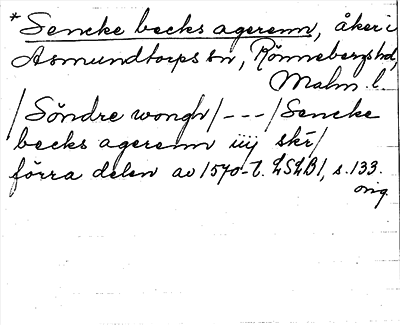 * Sencke becks agerenn, åker i
Asmundtorps sn, Rönnebergs hd,
Malm. l.
/Söndre wongh/ - - - /Sencke
becks agerenn iiij skr/
förra delen av 1570-t. LSLB1, s. 133.
orig.